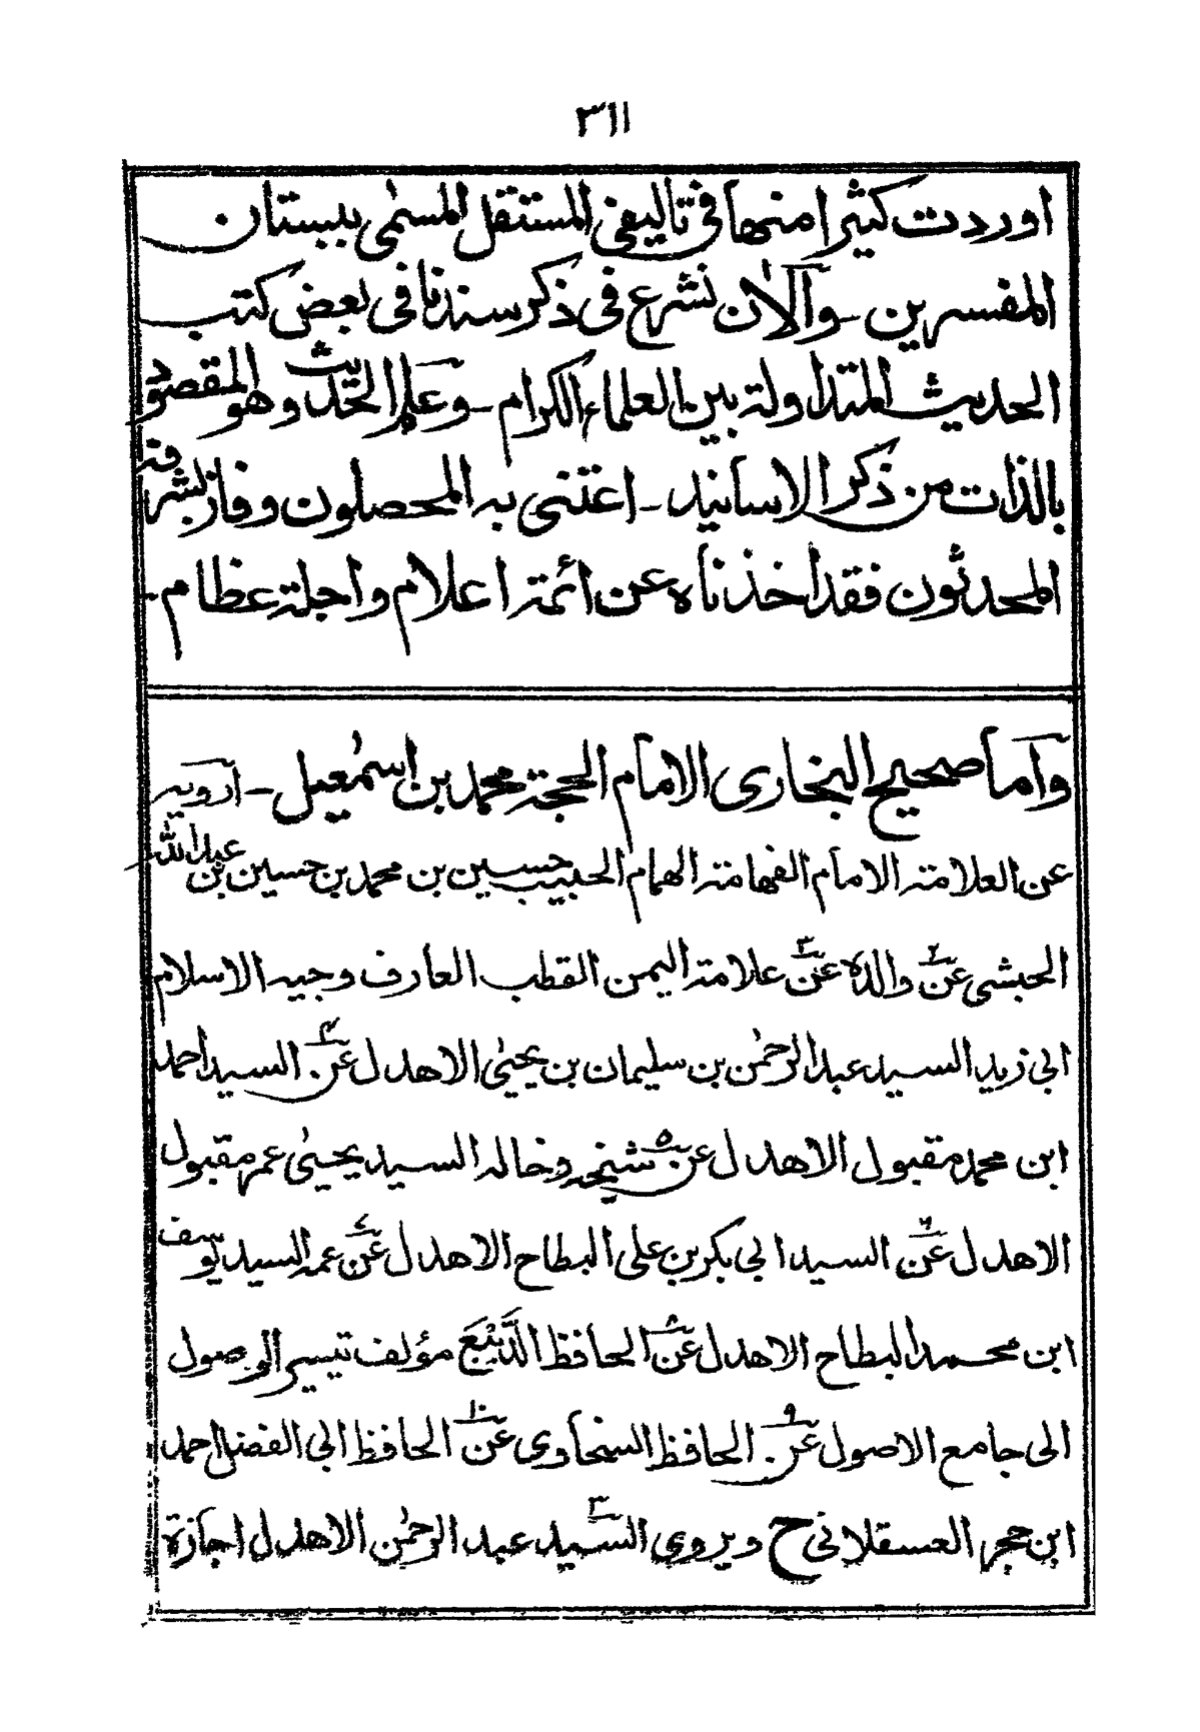 ٣١١
اوردت كثيرا منها فى تاليفى المستقل المسمى ببستان
المفسرين - والآن نشرع فى ذكر سندنا فى بعض كتب
الحديث المتداولة بين العلماء الكرام - وعلم الحديث وهو المقصود
بالذات من ذكر الاسانيد - اعتنى به المحصلون وفاز بشرفه
المحدثون فقد اخذناه عن ائمة اعلام واجلة عظام -
وأما صحيح البخارى الامام الحجة محمد بن اسمٰعيل - ارويه
عن العلامة الامام الفهامة الهمام الحبيب حسين بن محمد بن حسين بن عبد الله
الحبشى عن٢ والده عن٣ علامة اليمن القطب العارف وجيه الاسلام
ابى زيد السيد عبد الرحمٰن بن سليمان بن يحيىٰ الاهدل عن٤ السيد احمد
ابن محمد مقبول الاهدل عن٥ شيخه وخاله السيد يحيىٰ عمر مقبول
الاهدل عن٦ السيد ابى بكر بن على البطاح الاهدل عن٧ عمه السيد يوسف
ابن محمد البطاح الاهدل عن٨ الحافظ الدَّيْبَع مؤلف تيسير الوصول
الى جامع الاصول عن٩ الحافظ السخاوى عن١٠ الحافظ ابى الفضل احمد
ابن حجر العسقلانى ح ويروى السيد٣ عبد الرحمٰن الاهدل اجازة